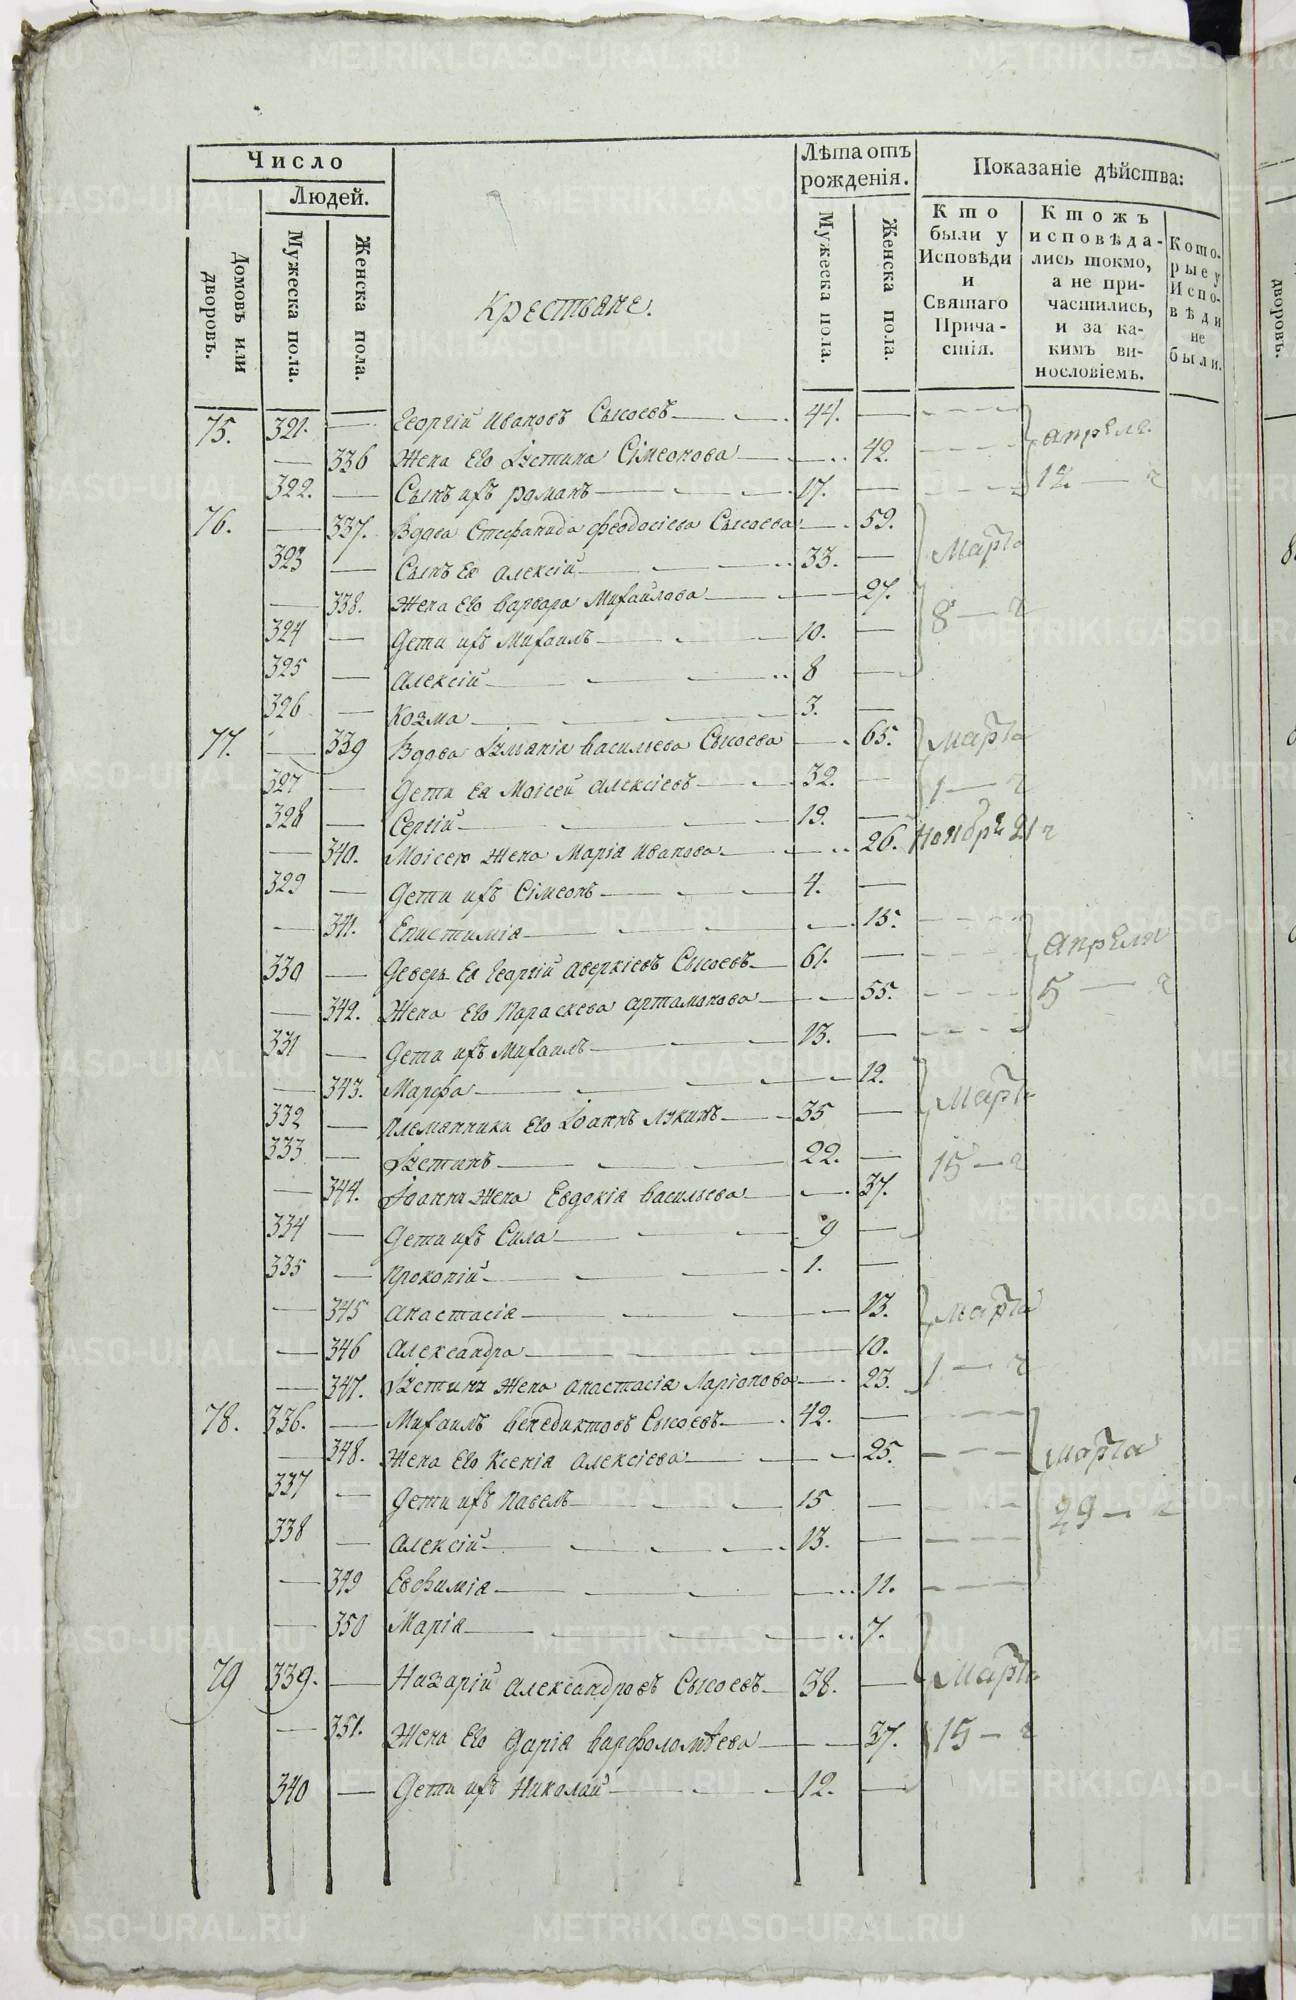 Число
Людей.
Домовъ или дворовъ.
Мужеска пола.
Женска пола.
Крестьяне.
Лѣта отъ рожденія.
Мужеска пола.
Женска пола.
Показаніе дѣйства:
Кто были у Исповѣди и Святаго Причастія.
Ктожъ исповѣдались токмо, а не причастились, и за какимъ винословіемъ.
Которые у Исповѣди не были.
75. 321. — Георгій Ивановъ Сысоевъ 44. —
— 336 Жена Его Iустина Сімеонова 42.
Апреля 12 — ч
322. — Сынъ ихъ Романъ 17. —
76. — 337. Вдова Стефанида Феодосіева Сысоева 59.
323 — Сынъ Ея Алексій 33. —
Марта
— 338. Жена Его Варвара Михайлова 27.
8 — ч
324 — Дети ихъ Михаилъ 10. —
325 — Алексій 8 —
326 — Козма 3. —
77. — 339 Вдова Іуліанія Васильева Сысоева 65.
Марта
327 — Дети Ея Моісей Алексіевъ 32. —
1 — ч
328 — Сергій 19. —
— 340. Моісею Жена Марія Иванова 26. Ноября 21 ч
329 — Дети ихъ Сімеонъ 4. —
— 341. Епистимія 15.
Апреля
330 — Деверь Ея Георгій Аверкіевъ Сысоевъ 61. —
— 342. Жена Его Параскева Артамонова 55.
5 — ч
331 — Дети ихъ Михаилъ 13. —
— 343. Марфа 12.
Марта
332 — Племянники Его Іоаннъ Лукинъ 35 —
333 — Іустинъ 22. —
15 — ч
— 344. Іоанну Жена Евдокія Васильева 37.
334 — Дети ихъ Сила 9 —
335 — Прокопій 1. —
— 345 Анастасія 13.
Марта
— 346 Александра 10.
1 — ч
— 347. Іустину Жена Анастасія Ларіонова 23.
78. 336. — Михаилъ Венедиктовъ Сысоевъ 42. —
— 348. Жена Его Ксенія Алексіева 25.
Марта
337 — Дети ихъ Павелъ 15 —
29 — ч
338 — Алексій 13. —
— 349 Евфимія 11.
— 350 Марія 7.
79 339. — Назарій Александровъ Сысоевъ 38. —
Марта
— 351. Жена Его Дарія Варфоломѣева 37.
15 — ч
340 — Дети ихъ Николай 12. —
METRIKI.GASO-URAL.RU